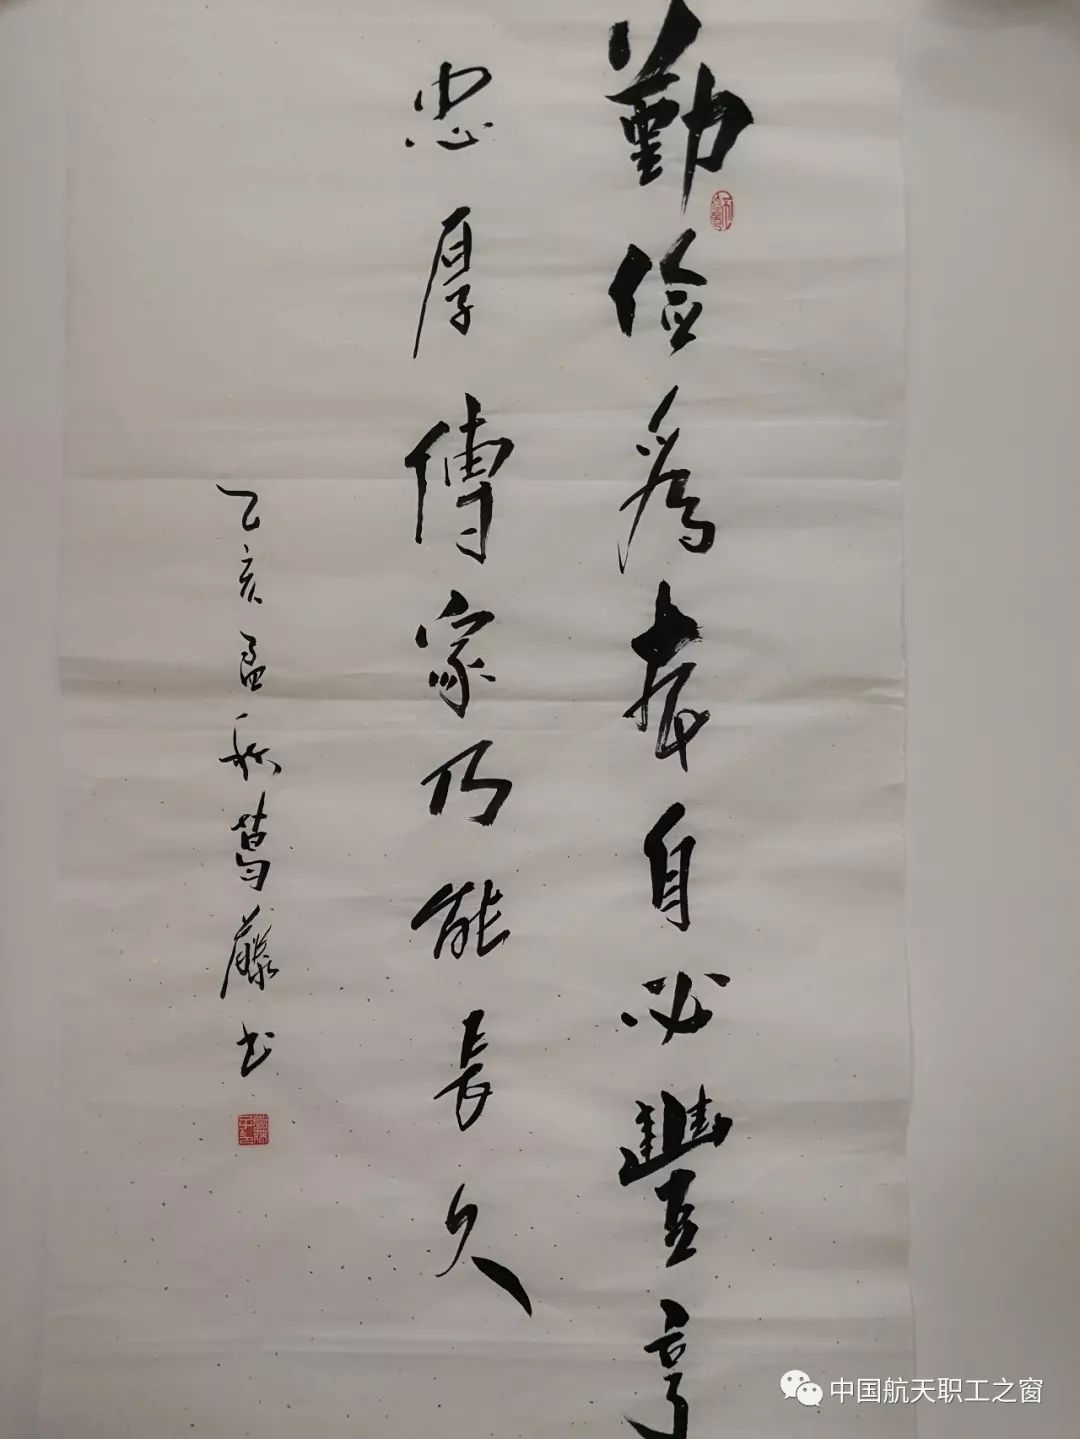 勤儉爲本自必豐亨
忠厚傳家乃能長久
乙亥孟秋葛藤书
中国航天职工之窗